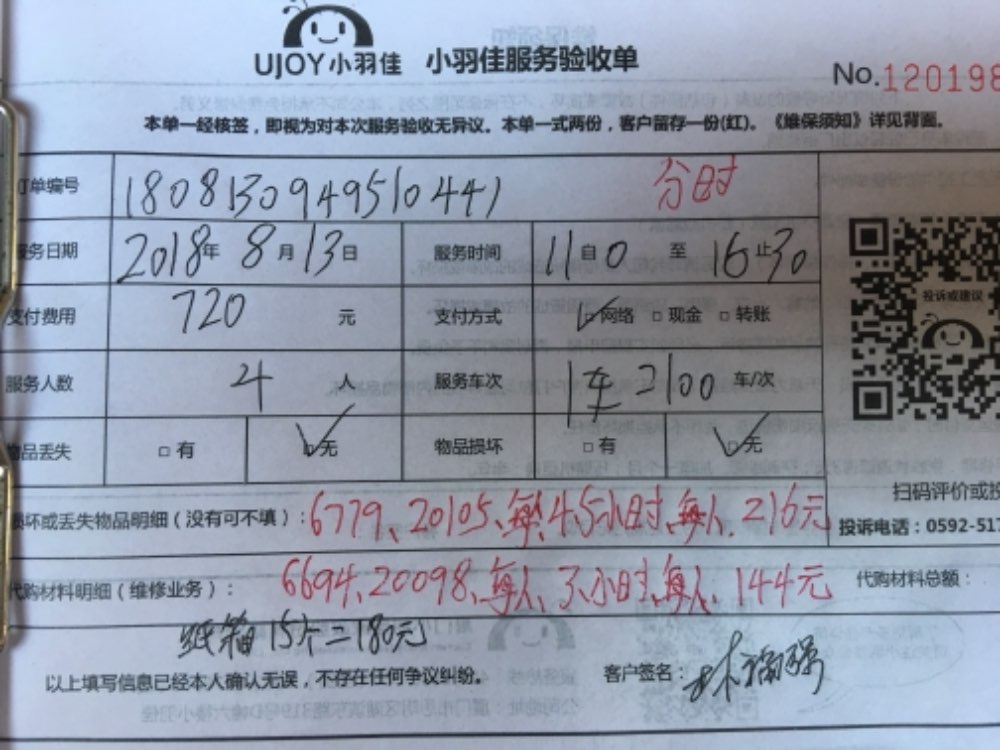 UJOY小羽佳 小羽佳服务验收单
No.120198
本单一经核签，即视为对本次服务验收无异议。本单一式两份，客户留存一份(红)。《维保须知》详见背面。
订单编号 180813094951044 1 分时
服务日期 2018年 8月 13日 服务时间 11自0 至 16止30
支付费用 720 元 支付方式 ☑网络 □现金 □转账
服务人数 4 人 服务车次 1车=100 车/次
物品丢失 □有 ☑无 物品损坏 □有 ☑无
投诉或建议
扫码评价或投
损坏或丢失物品明细（没有可不填）：6779、20105、每人4.5小时、每人、216元
投诉电话：0592-517
代购材料明细（维修业务）：6694、20098、每人、3小时、每人、144元 代购材料总额：
纸箱15个=180元
以上填写信息已经本人确认无误，不存在任何争议纠纷。 客户签名：林福强